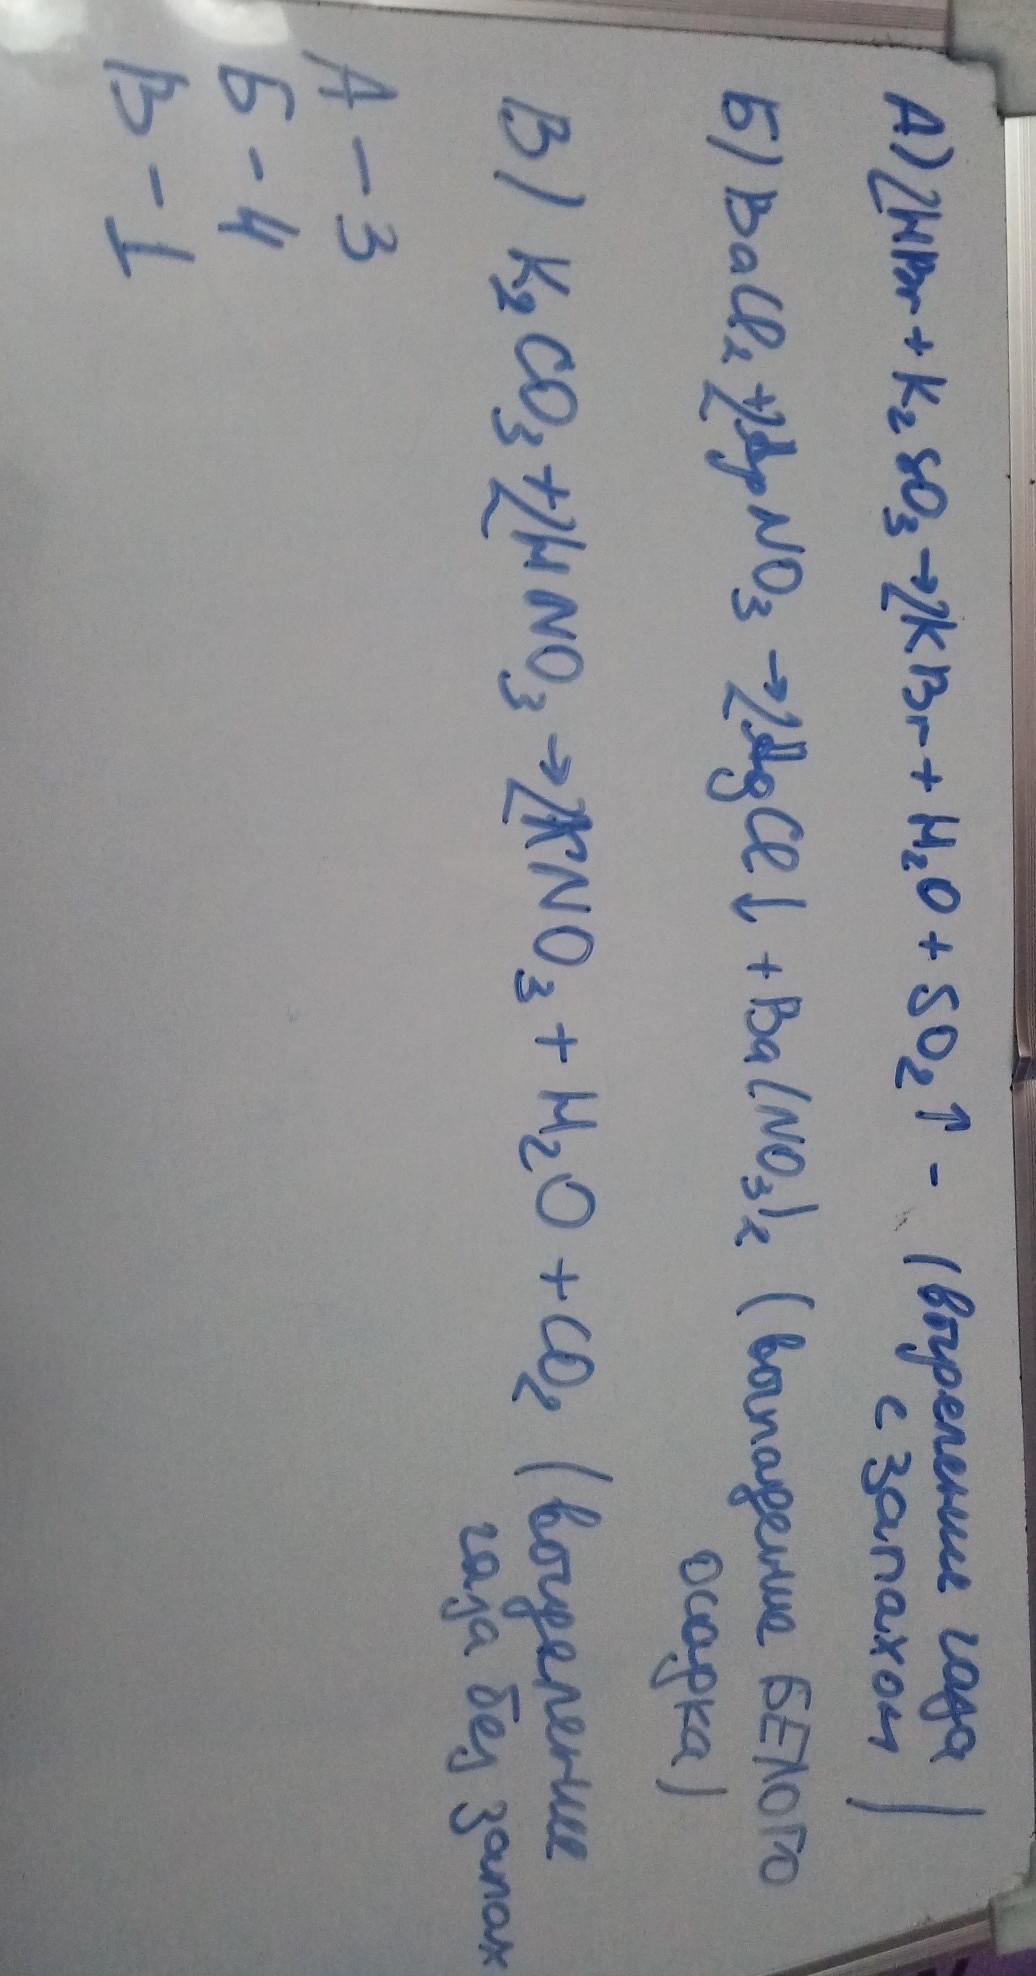 А) 2HBr + K2SO3 → 2KBr + H2O + SO2↑ - (выделение газа
с запахом)
Б) BaCl2 + 2AgNO3 → 2AgCl↓ + Ba(NO3)2 (выпадение БЕЛОГО
осадка)
В) K2CO3 + 2HNO3 → 2KNO3 + H2O + CO2 (выделение
газа без запах
А - 3
Б - 4
В - 1